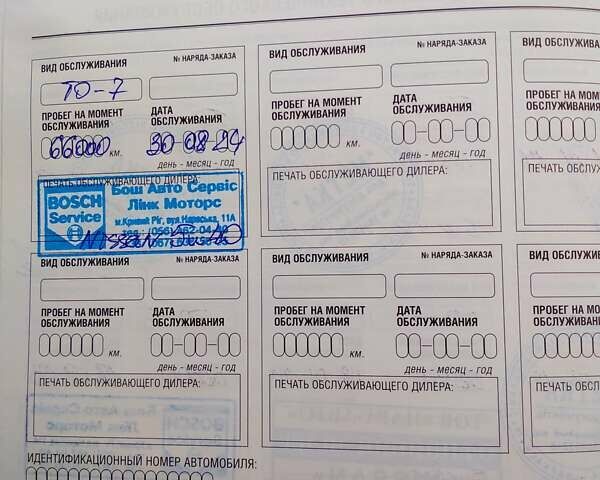 ВИД ОБСЛУЖИВАНИЯ № НАРЯДА-ЗАКАЗА
ТО-7
ПРОБЕГ НА МОМЕНТ ОБСЛУЖИВАНИЯ ДАТА ОБСЛУЖИВАНИЯ
66000 км.
день - месяц - год
ПЕЧАТЬ ОБСЛУЖИВАЮЩЕГО ДИЛЕРА:
BOSCH Service
Бош Авто Сервіс
Лінк Моторс
м.Кривий Ріг,
ВИД ОБСЛУЖИВАНИЯ № НАРЯДА-ЗАКАЗА
ПРОБЕГ НА МОМЕНТ ОБСЛУЖИВАНИЯ ДАТА ОБСЛУЖИВАНИЯ
км.
день - месяц - год
ПЕЧАТЬ ОБСЛУЖИВАЮЩЕГО ДИЛЕРА:
ВИД ОБСЛУЖИВА
ПРОБЕГ НА МО
ОБСЛУЖИВАНИ
ПЕЧАТЬ ОБСЛ
ВИД ОБСЛУЖИВАНИЯ № НАРЯДА-ЗАКАЗА
ПРОБЕГ НА МОМЕНТ ОБСЛУЖИВАНИЯ ДАТА ОБСЛУЖИВАНИЯ
км.
день - месяц - год
ПЕЧАТЬ ОБСЛУЖИВАЮЩЕГО ДИЛЕРА:
ВИД ОБСЛУЖИВАНИЯ № НАРЯДА-ЗАКАЗА
ПРОБЕГ НА МОМЕНТ ОБСЛУЖИВАНИЯ ДАТА ОБСЛУЖИВАНИЯ
км.
день - месяц - год
ПЕЧАТЬ ОБСЛУЖИВАЮЩЕГО ДИЛЕРА:
ВИД ОБСЛУЖИВ
ПРОБЕГ НА МО
ОБСЛУЖИВАНИ
ПЕЧАТЬ ОБСЛ
ИДЕНТИФИКАЦИОННЫЙ НОМЕР АВТОМОБИЛЯ: